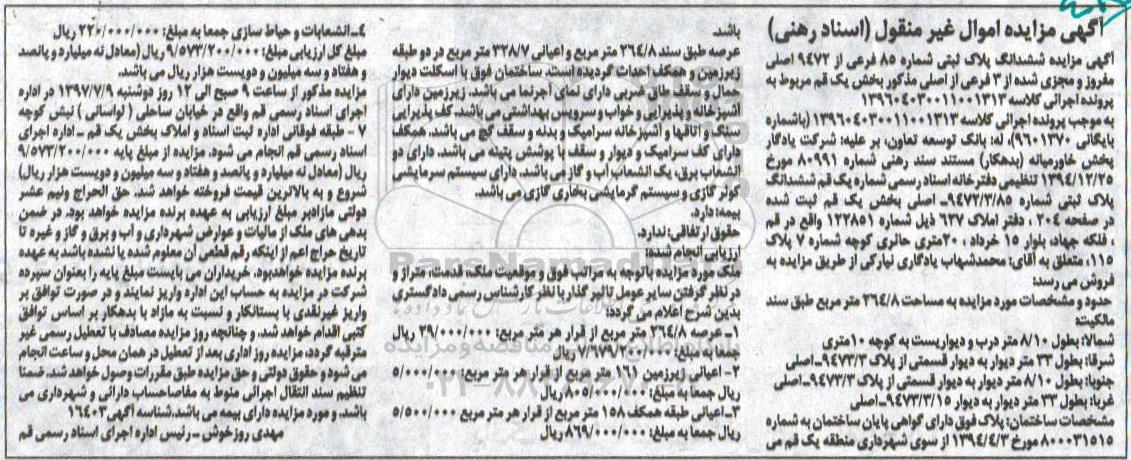 آگهی مزایده اموال غیر منقول (اسناد رهنی)
آگهی مزایده ششدانگ پلاک ثبتی شماره ۸۵ فرعی از ۹۴۷۲ اصلی
مفروز و مجزی شده از ۳ فرعی از اصلی مذکور بخش یک قم مربوط به
پرونده اجرائی کلاسه ۱۳۹۶۰۴۰۳۰۰۱۱۰۰۱۳۱۳
به موجب پرونده اجرائی کلاسه ۱۳۹۶۰۴۰۳۰۰۱۱۰۰۱۳۱۳ (باشماره
بایگانی ۹۶۰۱۳۷۰)، له: بانک توسعه تعاون، بر علیه: شرکت یادگار
پخش خاورمیانه (بدهکار) مستند سند رهنی شماره ۸۰۹۹۱ مورخ
۱۳۹۴/۱۲/۲۵ تنظیمی دفترخانه اسناد رسمی شماره یک قم ششدانگ
پلاک ثبتی شماره ۹۴۷۲/۳/۸۵ـ اصلی بخش یک قم ثبت شده
در صفحه ۲۰۴ ، دفتر املاک ۶۳۷ ذیل شماره ۱۲۲۸۵۱ واقع در قم
، فلکه جهاد، بلوار ۱۵ خرداد ، ۲۰متری حائری کوچه شماره ۷ پلاک
۱۱۵، متعلق به آقای: محمدشهاب یادگاری نیارکی از طریق مزایده به
فروش می رسد:
حدود و مشخصات مورد مزایده به مساحت ۲۶۴/۸ متر مربع طبق سند
مالکیت:
شمالا: بطول ۸/۱۰ متر درب و دیواریست به کوچه ۱۰متری
شرقا: بطول ۳۳ متر دیوار به دیوار قسمتی از پلاک ۹۴۷۳/۳ـاصلی
جنوبا: بطول ۸/۱۰ متر دیوار به دیوار قسمتی از پلاک ۹۴۷۳/۳ـاصلی
غربا: بطول ۳۳ متر دیوار به دیوار ۹۴۷۳/۳/۱۵ـاصلی
مشخصات ساختمان: پلاک فوق دارای گواهی پایان ساختمان به شماره
۸۰۰۰۳۱۵۱۵ مورخ ۱۳۹۴/۴/۳ از سوی شهرداری منطقه یک قم می
باشد.
عرصه طبق سند ۲۶۴/۸ متر مربع و اعیانی ۳۲۸/۷ متر مربع در دو طبقه
زیرزمین و همکف احداث گردیده است. ساختمان فوق با اسکلت دیوار
حمال و سقف طاق ضربی دارای نمای آجرنما می باشد. زیرزمین دارای
آشپزخانه و پذیرایی و خواب و سرویس بهداشتی می باشد. کف پذیرایی
سنگ و اتاقها و آشپزخانه سرامیک و بدنه و سقف گچ می باشد. همکف
دارای کف سرامیک و دیوار و سقف با پوشش پتینه می باشد. دارای دو
انشعاب برق، یک انشعاب آب و گاز می باشد. دارای سیستم سرمایشی
کولر گازی و سیستم گرمایشی بخاری گازی می باشد.
بیمه: دارد.
حقوق ارتفاقی: ندارد.
ارزیابی انجام شده:
ملک مورد مزایده باتوجه به مراتب فوق و موقعیت ملک، قدمت، متراژ و
در نظر گرفتن سایر عوامل تاثیر گذار با نظر کارشناس رسمی دادگستری
بدین شرح اعلام می گردد:
۱ـ عرصه ۲۶۴/۸ متر مربع از قرار هر متر مربع: ۲۹/۰۰۰/۰۰۰ ریال
جمعا به مبلغ: ۷/۶۷۹/۲۰۰/۰۰۰ ریال
۲ـ اعیانی زیرزمین ۱۶۱ متر مربع از قرار هر متر مربع: ۵/۰۰۰/۰۰۰
ریال جمعا به مبلغ: ۸۰۵/۰۰۰/۰۰۰ ریال
۳ـ اعیانی طبقه همکف ۱۵۸ متر مربع از قرار هر متر مربع ۵/۵۰۰/۰۰۰
ریال جمعا به مبلغ: ۸۶۹/۰۰۰/۰۰۰ ریال
۴ـ انشعابات و حیاط سازی جمعا به مبلغ: ۲۲۰/۰۰۰/۰۰۰ ریال
مبلغ کل ارزیابی مبلغ: ۹/۵۷۳/۲۰۰/۰۰۰ ریال (معادل نه میلیارد و پانصد
و هفتاد و سه میلیون و دویست هزار ریال می باشد.
مزایده مذکور از ساعت ۹ صبح الی ۱۲ روز دوشنبه ۱۳۹۷/۷/۹ در اداره
اجرای اسناد رسمی قم واقع در خیابان ساحلی ( لواسانی ) نبش کوچه
۷ - طبقه فوقانی اداره ثبت اسناد و املاک بخش یک قم ـ اداره اجرای
اسناد رسمی قم انجام می شود. مزایده از مبلغ پایه ۹/۵۷۳/۲۰۰/۰۰۰
ریال (معادل نه میلیارد و پانصد و هفتاد و سه میلیون و دویست هزار ریال)
شروع و به بالاترین قیمت فروخته خواهد شد. حق الحراج ونیم عشر
دولتی مازادبر مبلغ ارزیابی به عهده برنده مزایده خواهد بود. در ضمن
بدهی های ملک از مالیات و عوارض شهرداری و آب و برق و گاز و غیره تا
تاریخ حراج اعم از اینکه رقم قطعی آن معلوم شده یا نشده باشد به عهده
برنده مزایده خواهدبود. خریداران می بایست مبلغ پایه را بعنوان سپرده
شرکت در مزایده به حساب این اداره واریز نمایند و در صورت توافق بر
واریز غیرنقدی با بستانکار و نسبت به مازاد با بدهکار بر اساس توافق
کتبی اقدام خواهد شد. و چنانچه روز مزایده مصادف با تعطیل رسمی غیر
مترقبه گردد، مزایده روز اداری بعد از تعطیل در همان محل و ساعت انجام
می شود و حقوق دولتی و حق مزایده طبق مقررات وصول خواهد شد. ضمنا
تنظیم سند انتقال اجرائی منوط به مفاصاحساب دارائی و شهرداری می
باشد. و مورد مزایده دارای بیمه می باشد.شناسه آگهی ۱۶۴۰۳
مهدی روزخوش ـ رئیس اداره اجرای اسناد رسمی قم